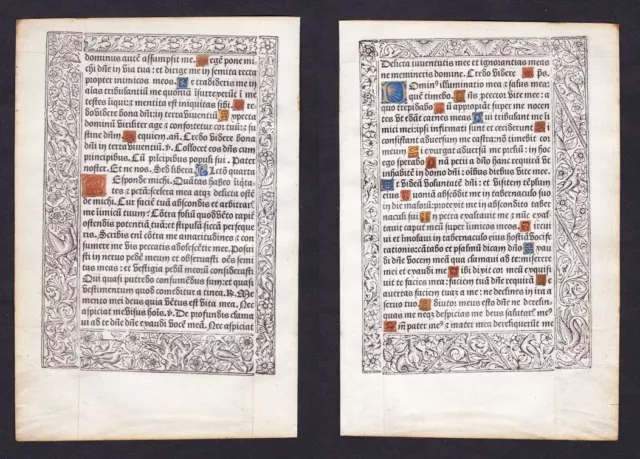 dominus autē assumpsit me. Legē pone mi
chi dñe in via tua: et dirige me in semita recta
propter inimicos meos. Ne tradideris me in
aīas tribulantiū me quoniā īsurrexerūt ī me
testes iniqui: z mentita est iniquitas sibi. Cre
do videre bona dñi: in terra viventiū. Expecta
dominū viriliter age z confortetur cor tuū: z su
stine dñm. Requiem. añ. Credo videre bona
dñi in terra viventiū. v. Collocet eos dñs cum
principibus. Cū p̄lcipibus populi sui. Pater
noster. Et ne nos. Sed libera. Lcō quarta
Responde michi. Quātas habeo iniq̄ta
tes z pctā: scelera mea atq; delicta ostē
de michi. Cur faciē tuā abscondis et arbitrar̄
me limicū tuum? Cōtra foliū quod vēto rapit̄
ostendis potentiā tuā: z stipulā siccā perseq̄
ris. Scribis eni cōtra me amaritudines z con
sumere me vis peccatis adolescētie mee. Posui
sti in neruo pedē meum et obseruasti oēs semi
tas meas: et vestigia pedū meorū considerasti
Qui quasi putredo consumēdus sum: et quasi
vestimentum quod comeditur a tinea. R. Me
mento mei deus quia vētus est vita mea. Nec
aspiciat me visus hois. v. De profundis clama
ui ad te dñe dñe exaudi vocē meā. Nec aspiciat
Delicta iuuentutis mee et ignorantias meas
ne memineris domine. Credo videre ps.
Dominus illuminatio mea z salus mea:
quē timebo. Dñs protector vite mee: a
quo trepidabo Dū appropiāt super me nocen
tes vt edāt carnes meas Qui tribulant me i
mici mei: ipsi infirmati sunt et ceciderunt Si
consistant aduersum me castra: nō timebit cor
meum Si exurgat aduersū me prelium: in hoc
ego sperabo Unā petii a dño hanc requirā vt
inhabitē in domo dñi: oībus diebus vite mee
Ut videā voluntatē dñi: et visitem tēplum
eius Quoniā abscōdit me in tabernaculo suo:
in die maloꝝ protexit me in abscondito taberna
culi sui In petra exaltauit me z nūc exal
tauit caput meū super iimicos meos Circui
ui et imolaui in tabernaculo eius hostiā vocife
rationis: cātabo et psalmū dicam dño Exaudi
dñe vocem meā qua clamaui ad te: miserere
mei et exaudi me Tibi dixit cor meū exquisi
uit te facies mea: faciem tuā dñe requirā Ne
auertas faciem tuā a me: ne declines in ira a
seruo tuo Adiutor meus esto dñe ne derelin
quas me neq; despicias me deus salutar̄ me?
Qm̄ pater me? z mater mea dereliquerūt me